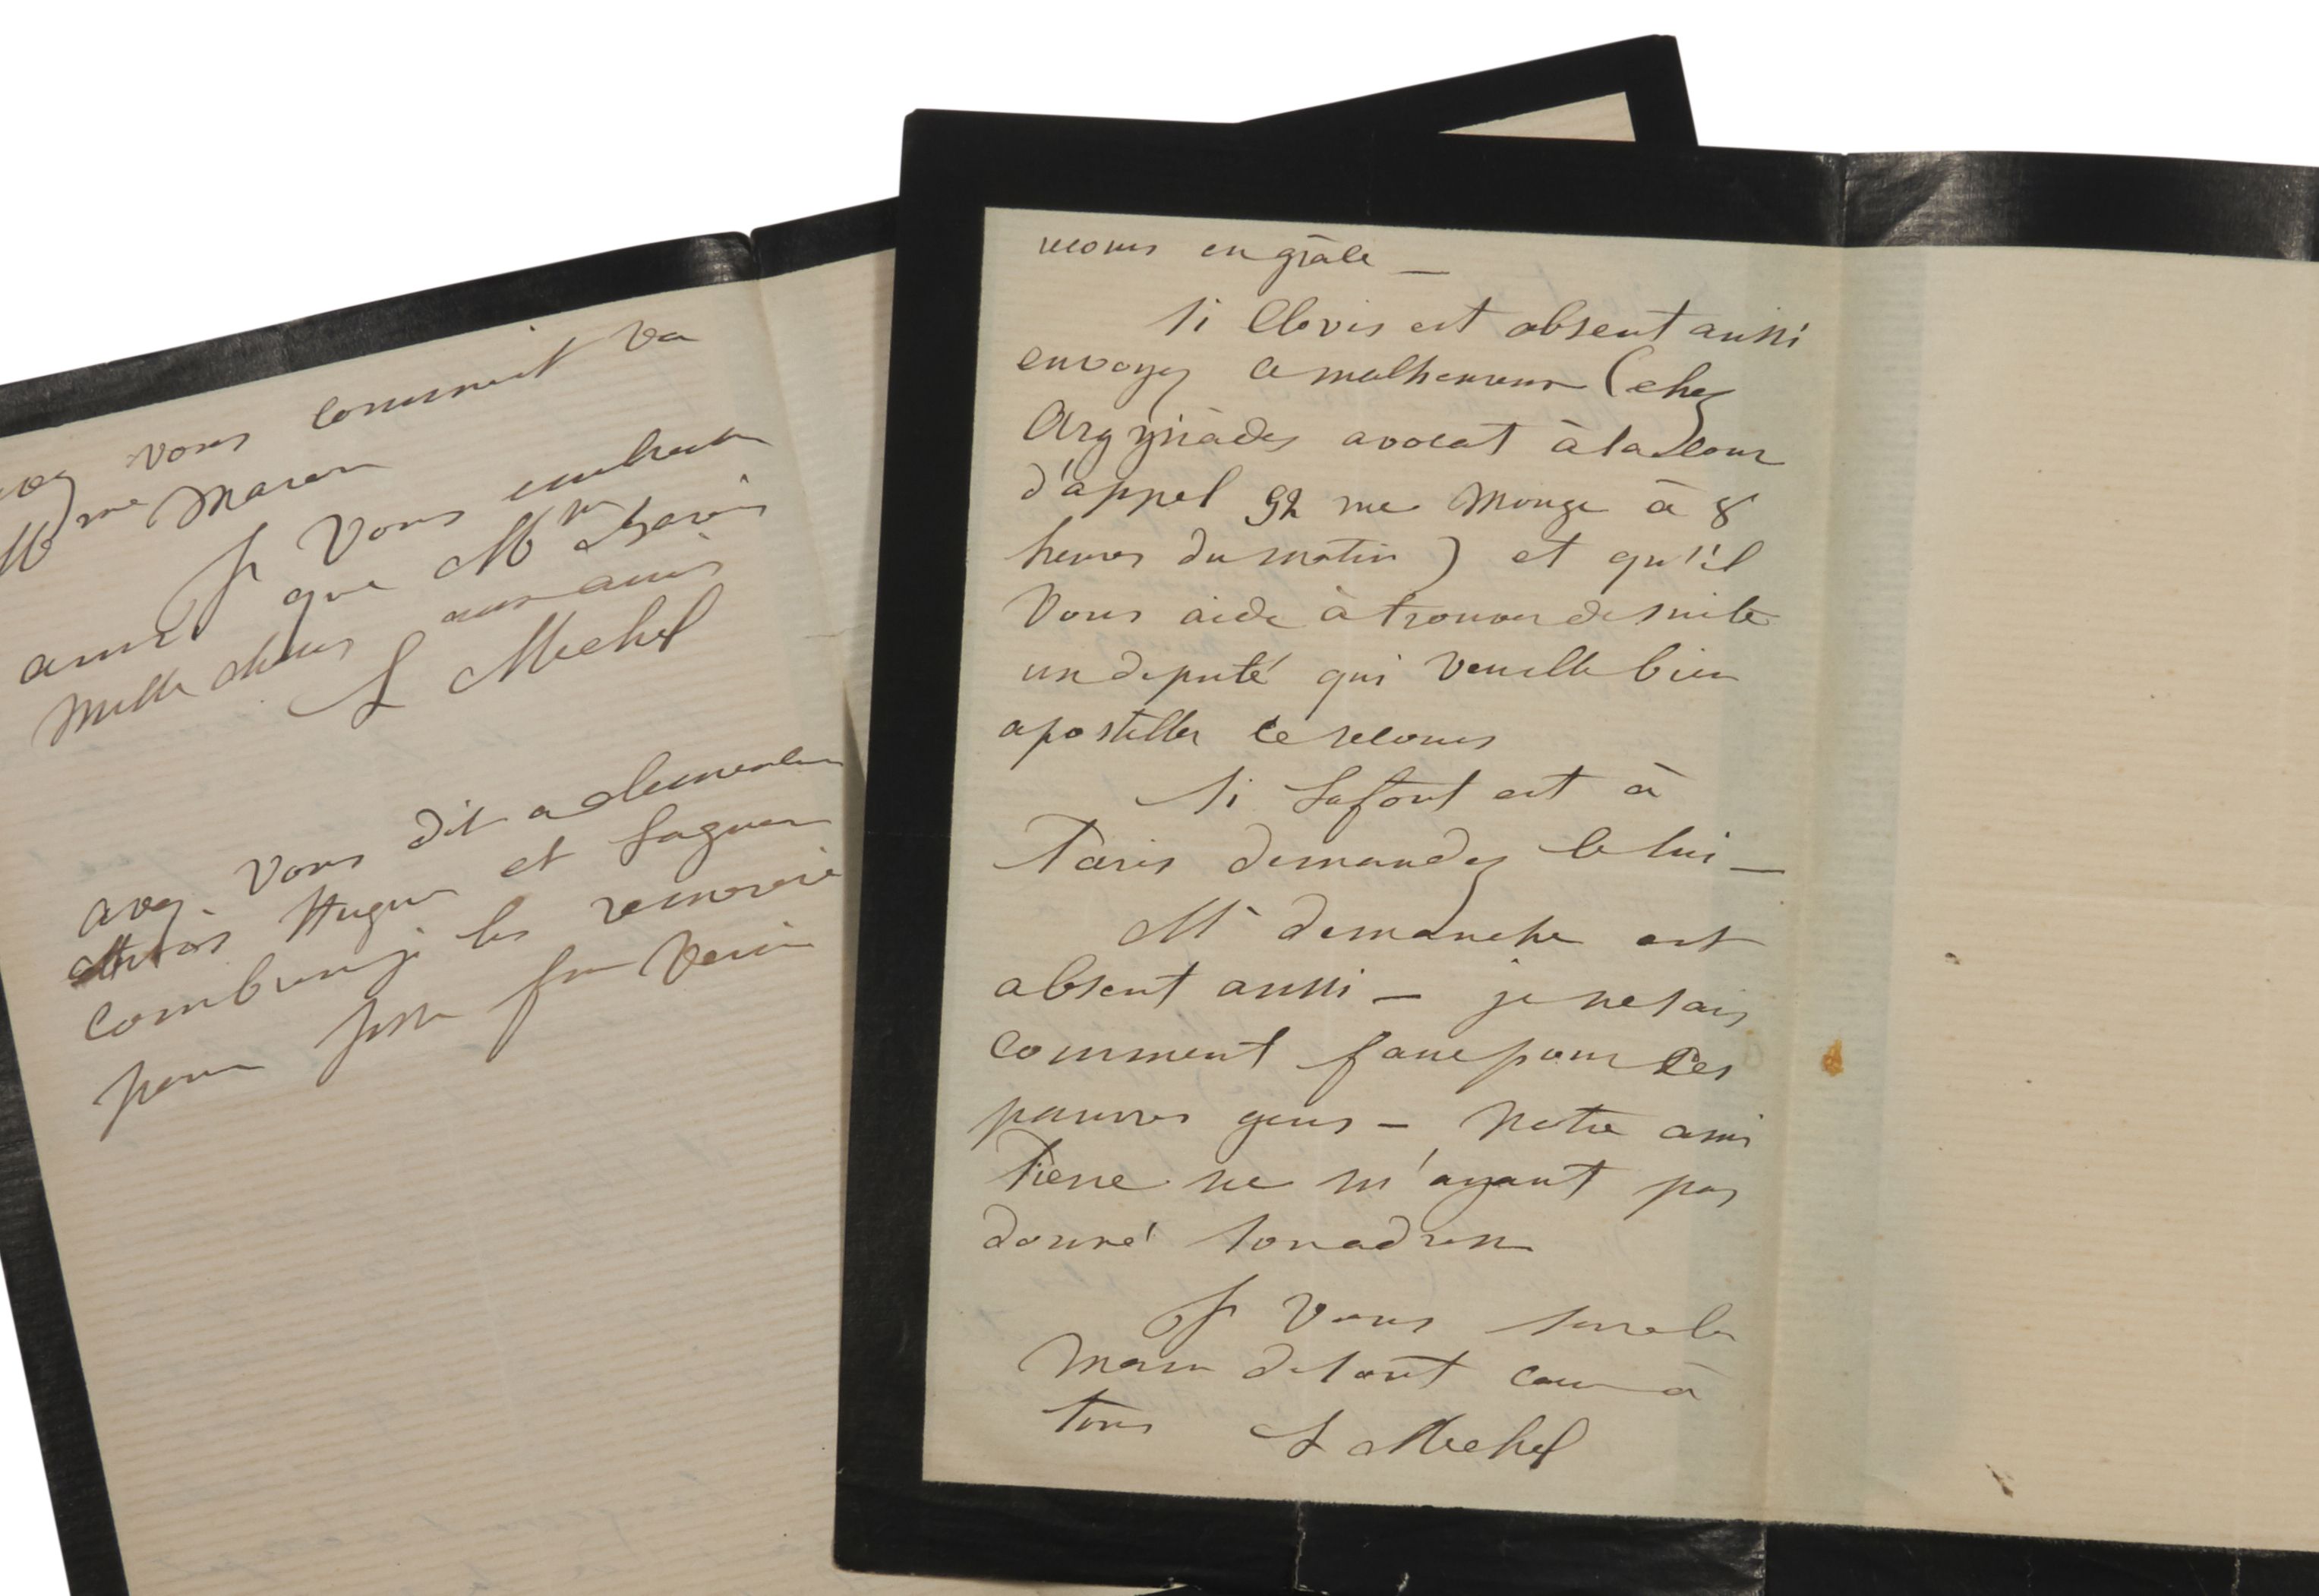 vous comment va
Mme Maron
Je vous embrasse
ainsi que Mr
mille choses aux amis
L Michel
avez vous dit a clemenceau
Hugues et
combien je les remercie
pour venir
recours en grâce —
Si Clovis est absent aussi
envoyez ce malheureux (chez
Argyriadès avocat à la Cour
d'appel 92 rue Monge à 8
heures du matin) et qu'il
vous aide à trouver de suite
un député qui veuille bien
apostiller ce recours
Si Lafont est à
Paris demandez le lui —
Mr demanche est
absent aussi — je ne sais
comment faire pour ces
pauvres gens — Notre ami
Pierre ne m'ayant pas
donné son adresse
Je vous serre la
main de tout cœur à
tous L Michel